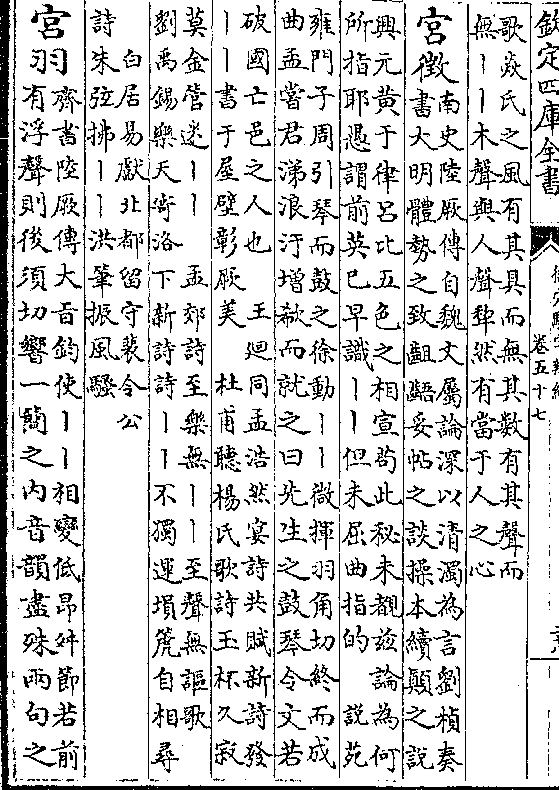 欽定四庫全書
卷五十七
歌焱氏之風有其具而無其數有其聲而
無丨丨木聲與人聲犂然有當于人之心
宮徵
南史陸厥傳自魏文屬論深以清濁為言劉楨奏
書大明體勢之致齟齬妥帖之談操本續顛之說
興元黄于律吕比五色之相宣苟此秘未覩兹論為何
所指耶愚謂前英已早識丨丨但未屈曲指的　說苑
雍門子周引琴而鼓之徐動丨丨微揮羽角切終而成
曲孟嘗君涕浪汙增欷而就之曰先生之鼓琴令文若
破國亡邑之人也　王廻同孟浩然宴詩共賦新詩發
丨丨書于屋壁彰厥美　杜甫聽楊氏歌詩玉杯久寂
莫金管迷丨丨　孟郊詩至樂無丨丨至聲無謳歌
劉禹錫樂天寄洛下新詩詩丨丨不獨運塤篪自相尋
白居易獻北都留守裴令公
詩朱弦拂丨丨洪筆振風騷
宮羽
齊書陸厥傳大旨鈞使丨丨相變低昂舛節若前
有浮聲則後須切響一簡之内音韻盡殊兩句之